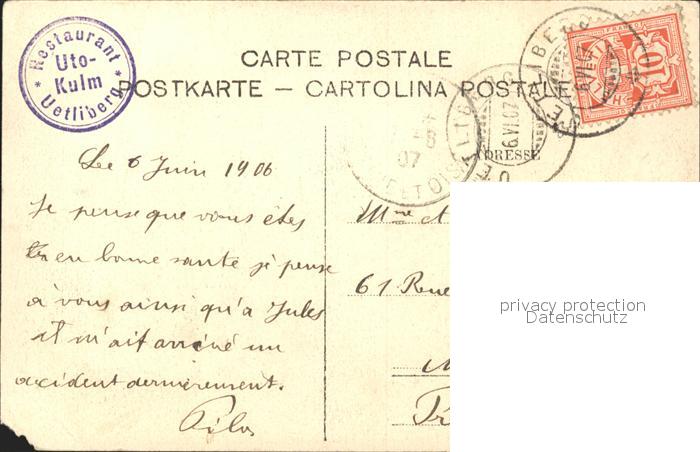 Restaurant
Uto-
Kulm
Uetliberg
CARTE POSTALE
POSTKARTE — CARTOLINA POSTALE
ADRESSE
6.VI.07
6.VI.07
10
07
Le 6 Juin 1906
Je pense que vous êtes
en bonne santé je pense
à vous ainsi qu'à Jules
il m'ait arrivé un
accident dernièrement.
Mme et
61 Rue
privacy protection
Datenschutz